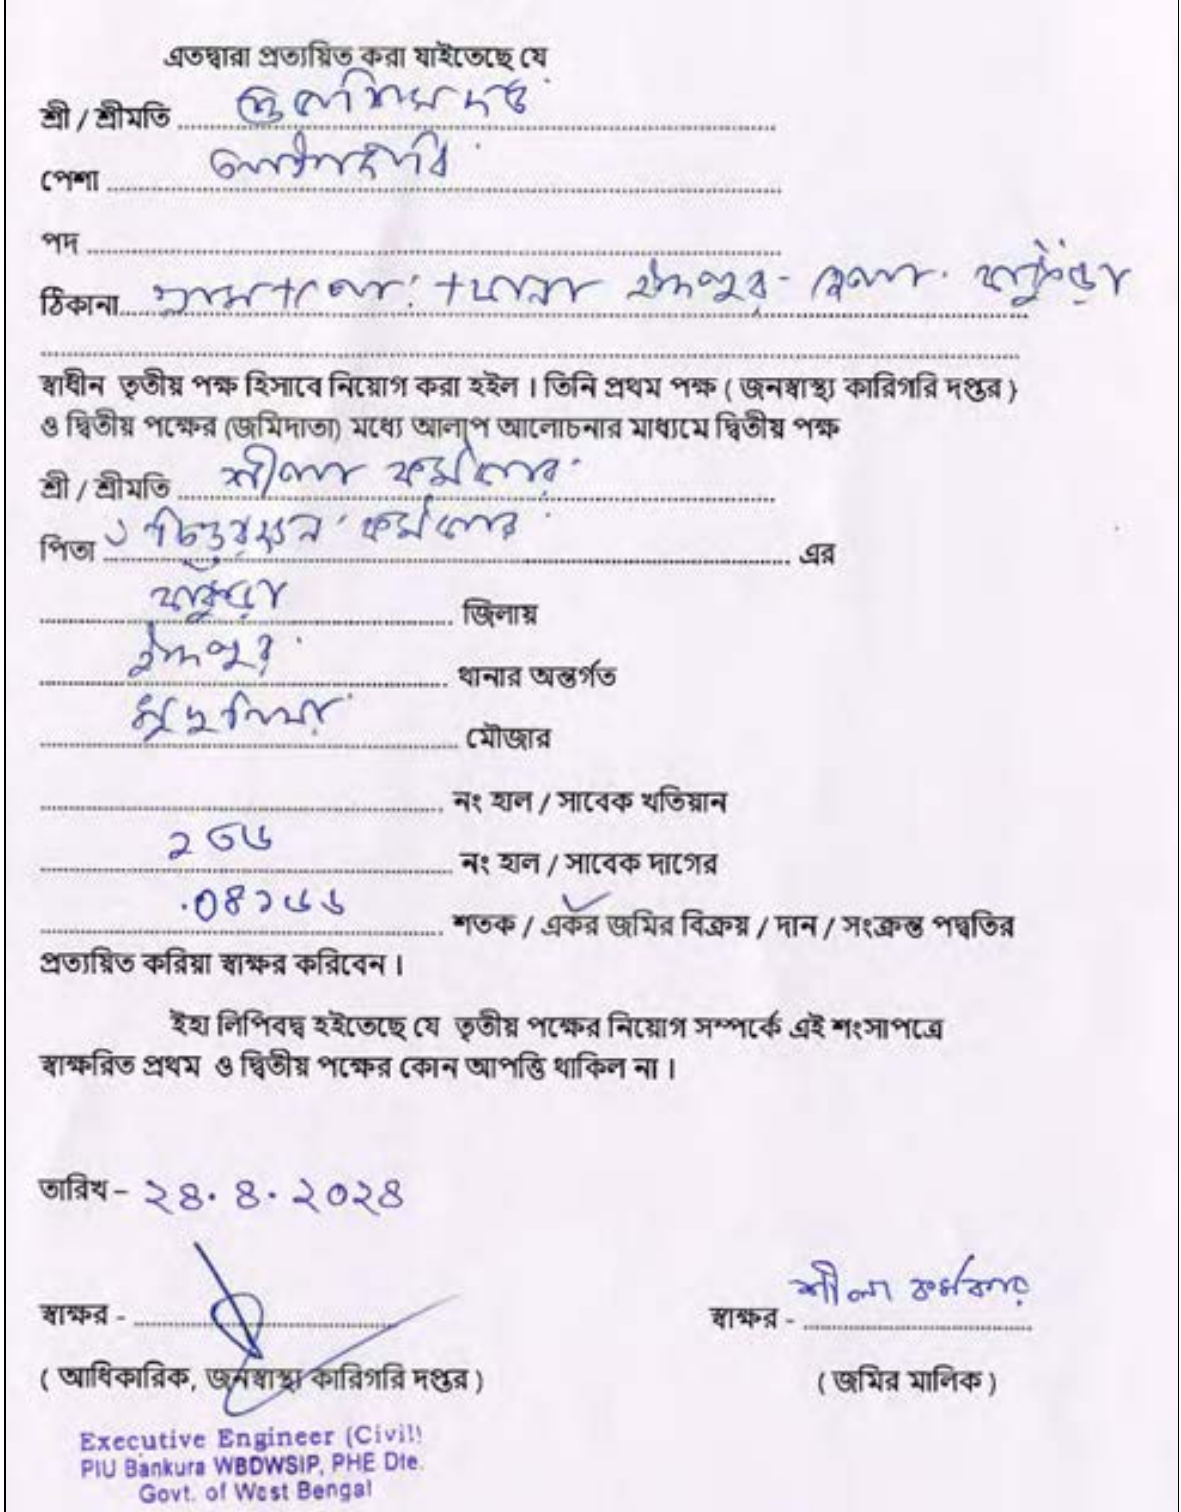 এতদ্বারা প্রত্যয়িত করা যাইতেছে যে
শ্রী / শ্রীমতি ........ দত্ত
পেশা ........
পদ ........
ঠিকানা........ গ্রাম + পো: + থানা ইন্দপুর - জেলা - বাঁকুড়া
স্বাধীন তৃতীয় পক্ষ হিসাবে নিয়োগ করা হইল । তিনি প্রথম পক্ষ ( জনস্বাস্থ্য কারিগরি দপ্তর )
ও দ্বিতীয় পক্ষের (জমিদাতা) মধ্যে আলাপ আলোচনার মাধ্যমে দ্বিতীয় পক্ষ
শ্রী / শ্রীমতি ........ শীলা কর্মকার
পিতা ........ কর্মকার ........ এর
বাঁকুড়া ........ জিলায়
ইন্দপুর ........ থানার অন্তর্গত
........ মৌজার
........ নং হাল / সাবেক খতিয়ান
২৩৬ ........ নং হাল / সাবেক দাগের
.০৪১৬৬ ........ শতক / একর জমির বিক্রয় / দান / সংক্রন্ত পদ্বতির
প্রত্যয়িত করিয়া স্বাক্ষর করিবেন ।
ইহা লিপিবদ্ব হইতেছে যে তৃতীয় পক্ষের নিয়োগ সম্পর্কে এই শংসাপত্রে
স্বাক্ষরিত প্রথম ও দ্বিতীয় পক্ষের কোন আপত্তি থাকিল না ।
তারিখ – ২৪. ৪. ২০২৪
শীলা কর্মকার
স্বাক্ষর - ........ স্বাক্ষর - ........
( আধিকারিক, জনস্বাস্থ্য কারিগরি দপ্তর ) ( জমির মালিক )
Executive Engineer (Civil)
PIU Bankura WBDWSIP, PHE Dte.
Govt. of West Bengal